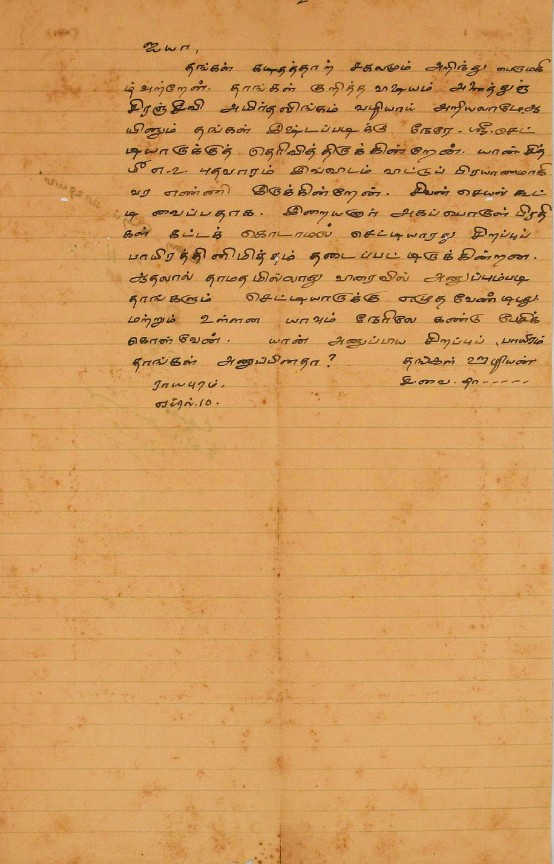 ஐயா,
தங்கள் கடிதத்தாற் சகலமும் அறிந்து பெருமகி
ழ்வுற்றேன். தாங்கள் குறித்த விஷயம் அனைத்துஞ்
சிரஞ்சீவி அமிர்தலிங்கம் வழியாய் அறியலாமே ஆ
யினும் தங்கள் இஷ்டப்படிக்கு நேரே ஸ்ரீ செட்
டியாருக்குத் தெரிவித்திருக்கின்றேன். யான் சித்
மீ எ-உ புதவாரம் இவ்விடம் விட்டுப் பிரயாணமாகி
வர எண்ணி இருக்கின்றேன். சிவன் செயல் கூட்
டி வைப்பதாக. இறையனார் அகப்பொருள் பிரதி
கள் கட்டக் கொடாமல் செட்டியாரது சிறப்புப்
பாயிரத்தினிமித்தம் தடைப்பட்டிருக்கின்றன.
ஆதலால் தாமதமில்லாது விரைவில் அனுப்பும்படி
தாங்களும் செட்டியாருக்கு எழுத வேண்டியது.
மற்றும் உள்ளன யாவும் நேரிலே கண்டு பேசிக்
கொள்வேன். யான் அனுப்பிய சிறப்புப் பாயிரம்
தாங்கள் அனுப்பினதா? தங்கள் ஊழியன்
ராயபுரம்.
ஏப்ரல்.10.